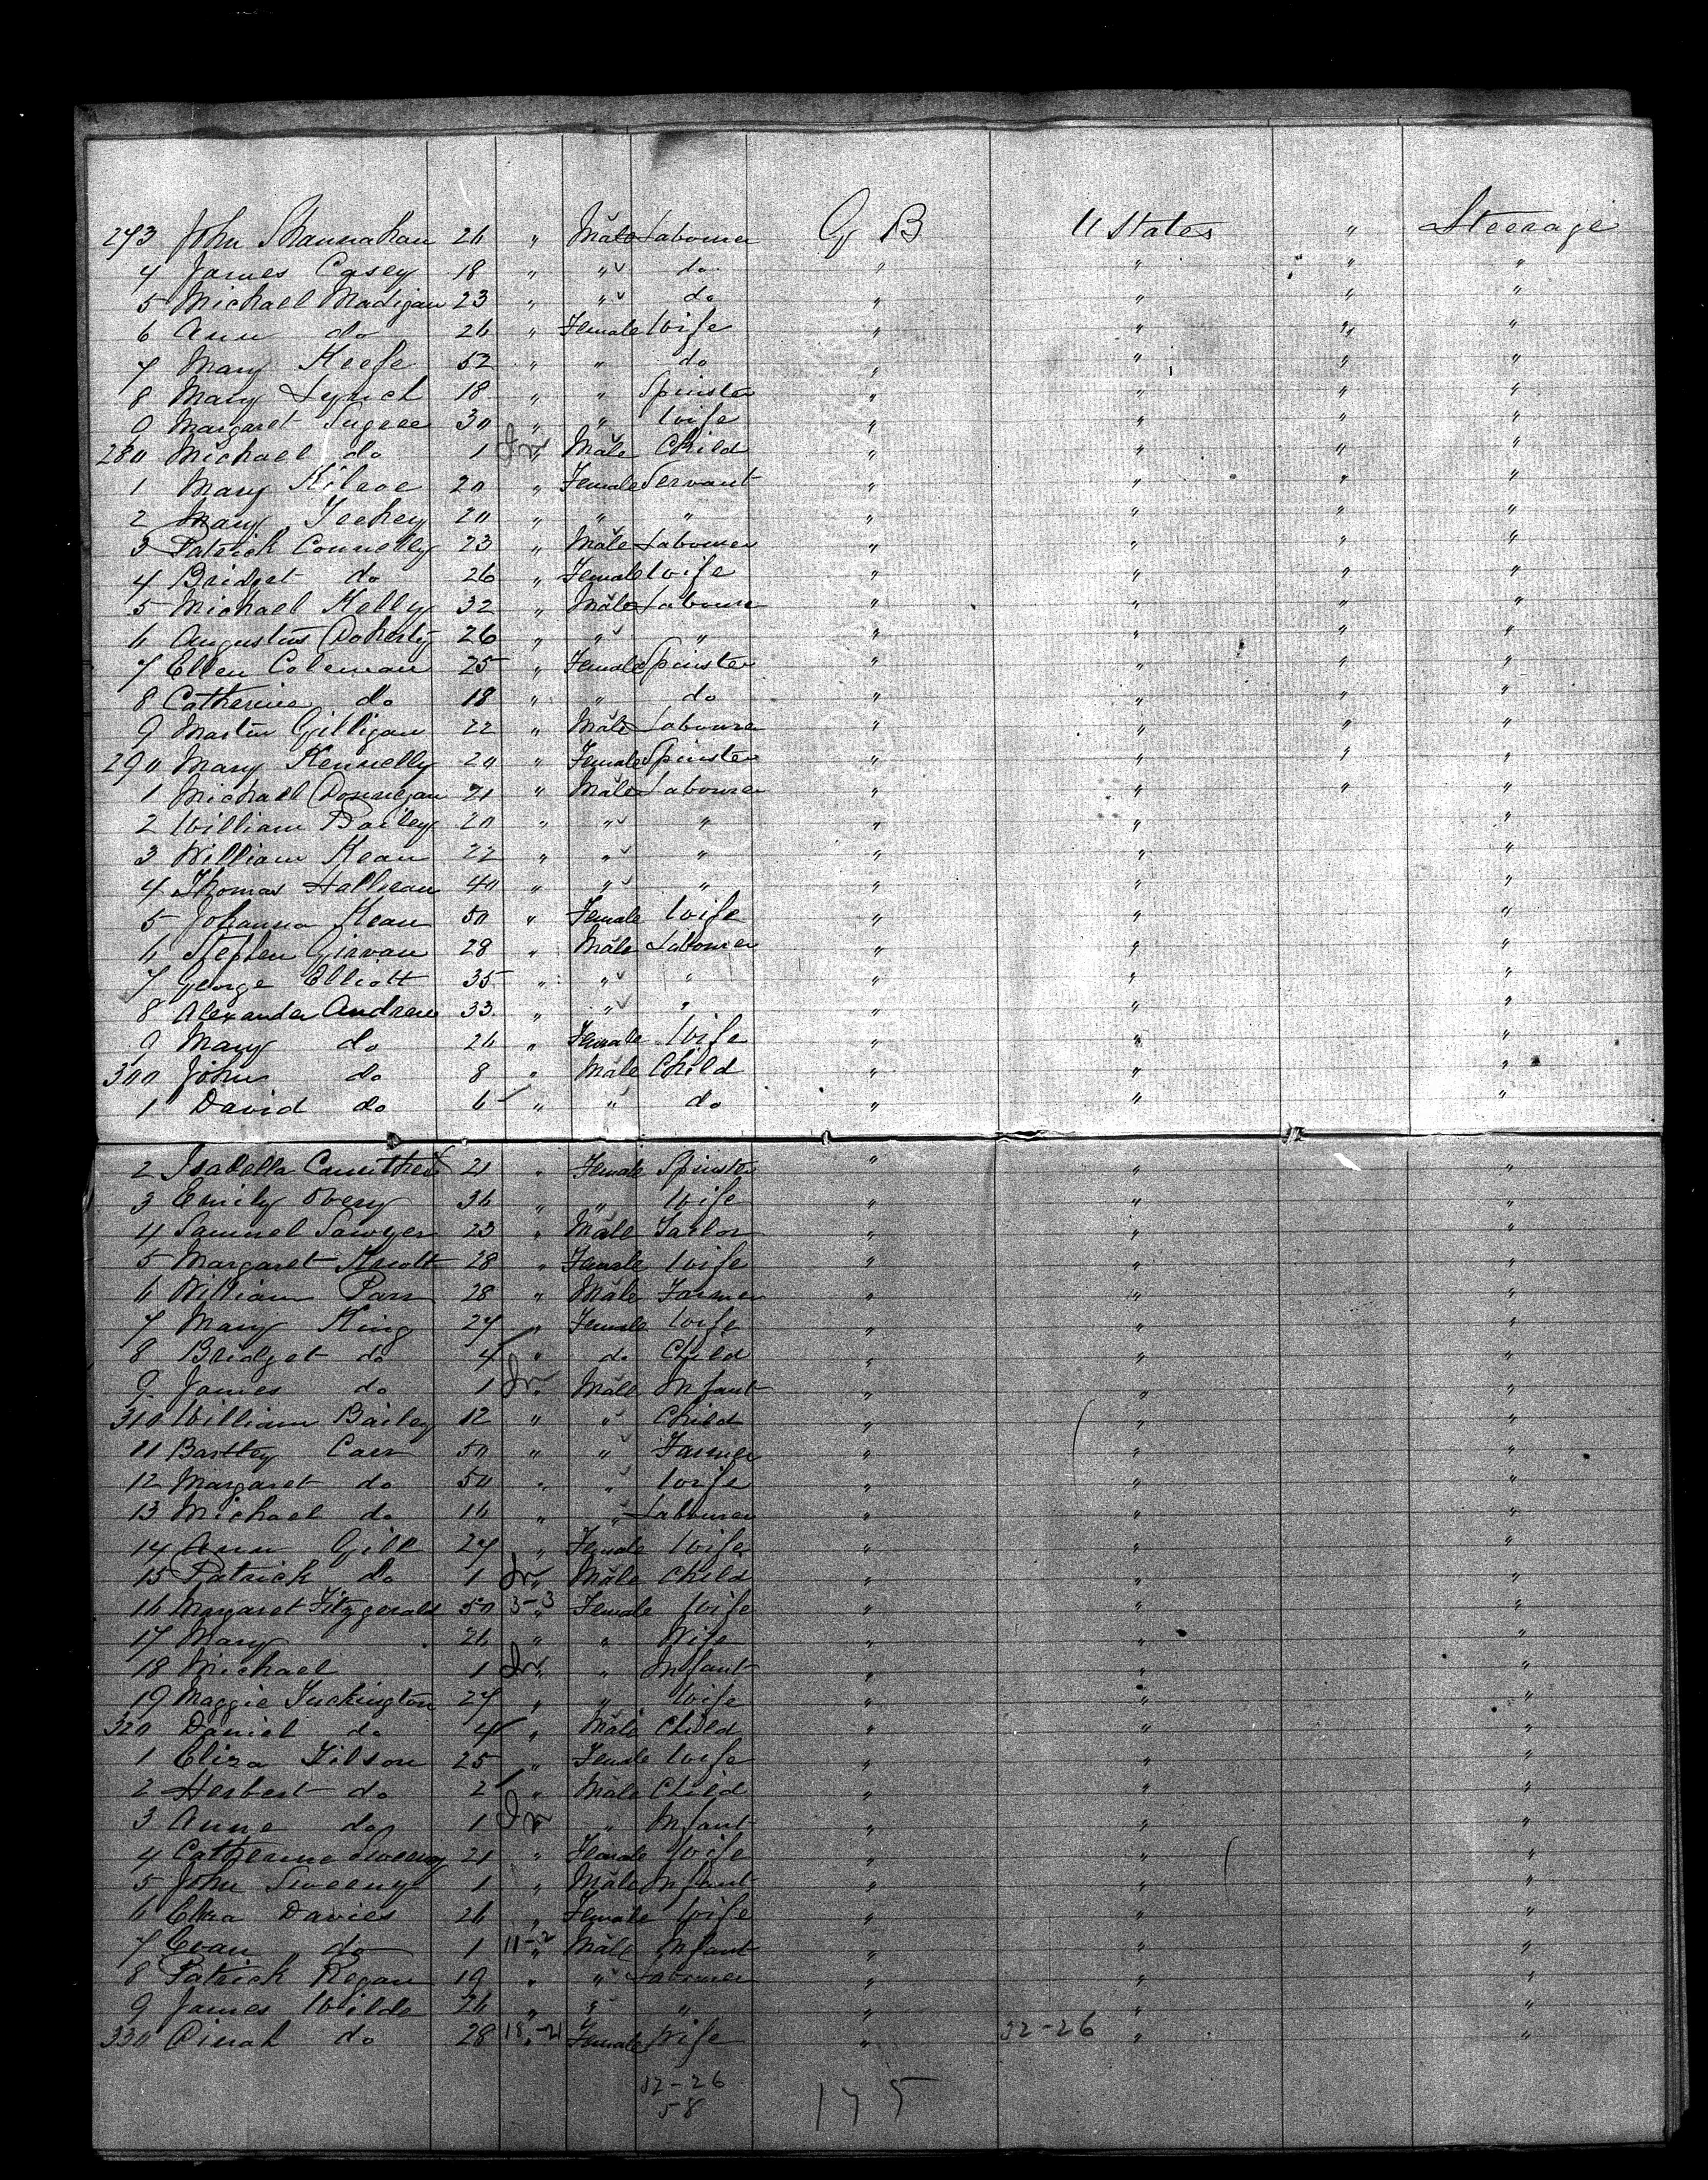 273 John Shannahan 26 " Male Labourer G B U States " Steerage
4 James Casey 18 " " do " " " "
5 Michael Madigan 23 " " do " " " "
6 Ann do 26 " Female Wife " " " "
7 Mary Keefe 52 " " do " " " "
8 Mary Lynch 18 " " Spinster " " " "
9 Margaret Sugree 30 " " Wife " " " "
280 Michael do 1 " Male Child " " " "
1 Mary Kilroe 20 " Female Servant " " " "
2 Mary 20 " " " " " " "
3 Patrick Connelly 23 " Male Labourer " " " "
4 Bridget do 26 " Female Wife " " " "
5 Michael Kelly 32 " Male Labourer " " " "
6 Augustus Doherty 26 " " " " " " "
7 Ellen Coleman 25 " Female Spinster " " " "
8 Catherine do 18 " " do " " " "
9 Martin Gilligan 22 " Male Labourer " " " "
290 Mary Kennelly 20 " Female Spinster " " " "
1 Michael Donnegan 21 " Male Labourer " " " "
2 William Bailey 20 " " " " " "
3 William Kean 22 " " " " " "
4 Thomas Halleran 40 " " " " " "
5 Johanna Kean 50 " Female Wife " " "
6 Stephen Girvan 28 " Male Labourer " " "
7 George Elliott 35 " " " " " "
8 Alexander Andrew 33 " " " " " "
9 Mary do 26 " Female Wife " " "
300 John do 8 " Male Child " " "
1 David do 6 " " do " " "
2 Isabella 21 " Female Spinster " " "
3 Emily Overy 36 " " Wife " " "
4 Samuel Sawyer 23 " Male Tailor " " "
5 Margaret Knott 28 " Female Wife " " "
6 William Parr 28 " Male Farmer " " "
7 Mary King 27 " Female Wife " " "
8 Bridget do 4 " do Child " " "
9 James do 1 " Male Infant " " "
310 William Bailey 12 " " Child " " "
11 Bartley Carr 50 " " Farmer " " "
12 Margaret do 50 " " Wife " " "
13 Michael do 16 " " Labourer " " "
14 Ann Gill 27 " Female Wife " " "
15 Patrick do 1 " Male Child " " "
16 Margaret Fitzgerald 50 3-3 " Female Wife " " "
17 Mary 26 " " Wife " " "
18 Michael 1 " " Infant " " "
19 Maggie Tuckington 27 " " Wife " " "
320 Daniel do 4 " Male Child " " "
1 Eliza Tilson 25 " Female Wife " " "
2 Herbert do 2 " Male Child " " "
3 Anne do 1 " " Infant " " "
4 Catherine Sweeny 21 " Female Wife " " "
5 John Sweeny 1 " Male Infant " " "
6 Davies 26 " Female Wife " " "
7 Evan do 1 11-2 " Male Infant " " "
8 Patrick Regan 19 " " Labourer " " "
9 James Wilde 26 " " " " " "
330 Dinah do 28 18-21 " Female Wife " 32-26 " "
32-26
58
175